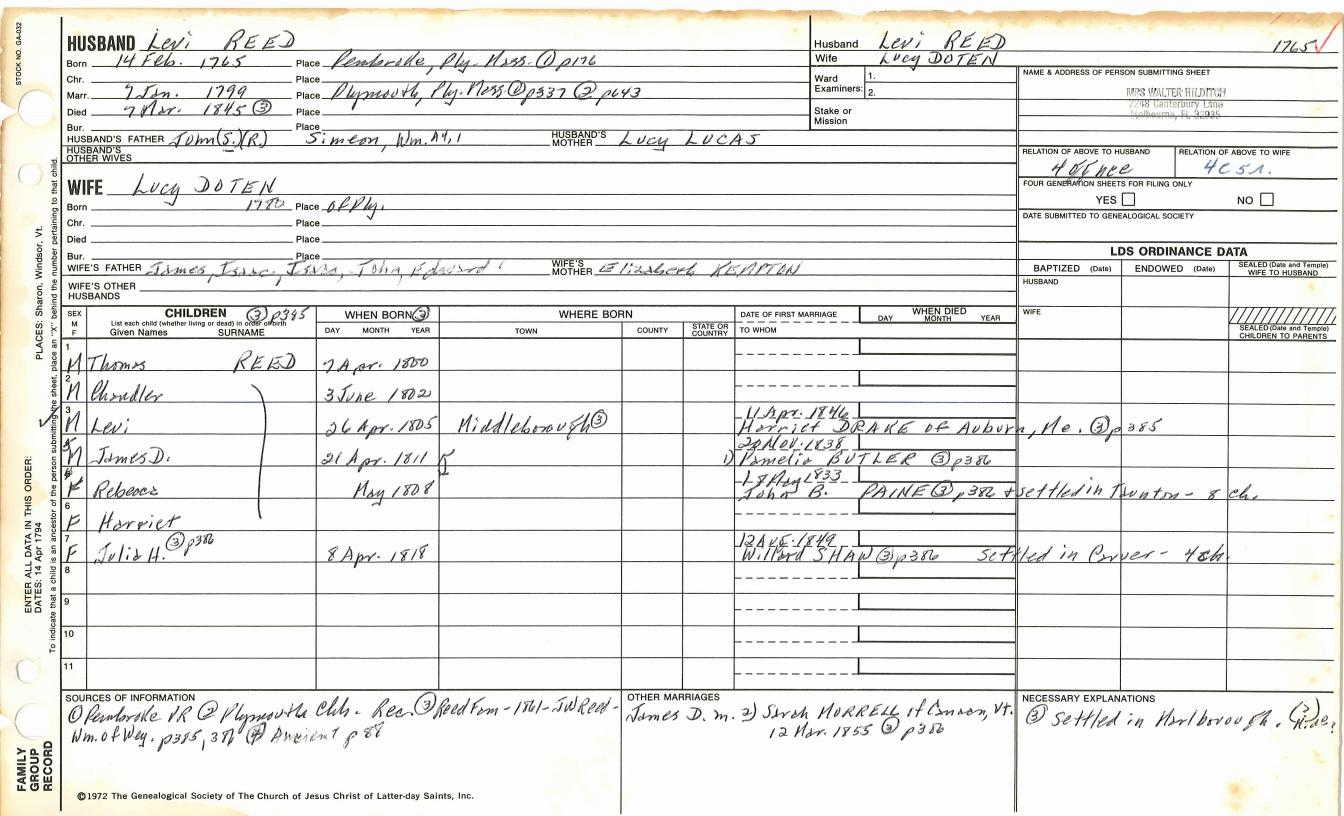 STOCK NO. GA-032
HUSBAND Levi REED
Born 14 Feb. 1765 Place Pembroke, Ply. Mass. ① p176
Chr. Place
Marr. 7 Jan. 1799 Place Plymouth, Ply. Mass ① p337 ② p643
Died 7 Mar. 1845 ③ Place
Bur. Place
HUSBAND'S FATHER John (S.)(R.) Simeon, Wm. HUSBAND'S MOTHER Lucy LUCAS
HUSBAND'S OTHER WIVES
WIFE Lucy DOTEN
Born 1780 Place of Ply.
Chr. Place
Died Place
Bur. Place
WIFE'S FATHER James, Isaac, Isaac, John, Edward WIFE'S MOTHER Elizabeth KEMPTON
WIFE'S OTHER HUSBANDS
Husband Levi REED 1765 ✓
Wife Lucy DOTEN
Ward Examiners: 1.
2.
Stake or Mission
NAME & ADDRESS OF PERSON SUBMITTING SHEET
MRS WALTER HILDITCH
2248 Canterbury Lane
Melbourne, FL 32935
RELATION OF ABOVE TO HUSBAND RELATION OF ABOVE TO WIFE
4c5r.
FOUR GENERATION SHEETS FOR FILING ONLY
YES NO
DATE SUBMITTED TO GENEALOGICAL SOCIETY
LDS ORDINANCE DATA
BAPTIZED (Date) ENDOWED (Date) SEALED (Date and Temple) WIFE TO HUSBAND
HUSBAND
WIFE
SEALED (Date and Temple) CHILDREN TO PARENTS
SEX M F CHILDREN ③ p385 WHEN BORN ③ WHERE BORN DATE OF FIRST MARRIAGE WHEN DIED
List each child (whether living or dead) in order of birth
Given Names SURNAME DAY MONTH YEAR TOWN COUNTY STATE OR COUNTRY TO WHOM DAY MONTH YEAR
1 M Thomas REED 7 Apr. 1800
2 M Chandler 3 June 1802
3 M Levi 26 Apr. 1805 Middleborough ③ 11 Apr. 1846
Harriet DRAKE of Auburn, Me. ③ p385
5 M James D. 21 Apr. 1811 29 Nov. 1838
1) Pamelia BUTLER ③ p386
4 F Rebecca May 1808 18 May 1833
John B. PAINE ③ p386 + settled in Taunton - 8 ch.
6 F Harriet
7 F Julia H. ③ p386 8 Apr. 1818 12 Aug. 1849
Willard SHAW ③ p386 Settled in Carver - 4 ch.
8
9
10
11
SOURCES OF INFORMATION
① Pembroke VR ② Plymouth Chh. Rec. ③ Reed Fam - 1861 - JW Reed -
Wm. of Wey. p385, 386 ④ Ancient p 89
OTHER MARRIAGES
James D. m. 2) Sarah MORRELL of Canaan, Vt.
12 Mar. 1855 ③ p386
NECESSARY EXPLANATIONS
③ Settled in Marlborough.
©1972 The Genealogical Society of The Church of Jesus Christ of Latter-day Saints, Inc.
FAMILY GROUP RECORD
ENTER ALL DATA IN THIS ORDER:
DATES: 14 Apr 1794
PLACES: Sharon, Windsor, Vt.
To indicate that a child is an ancestor of the person submitting the sheet, place an "X" behind the number pertaining to that child.